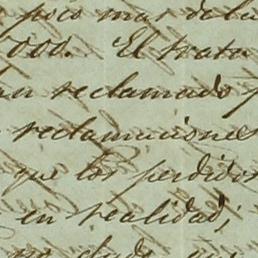 poco mas de la
000. El trato
an reclamado
reclamaciones
que los perdidos
en realidad;
no dudo que